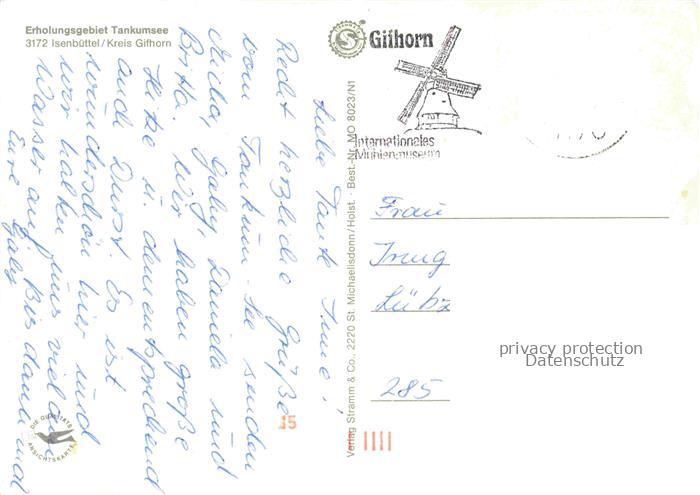 Erholungsgebiet Tankumsee
3172 Isenbüttel/Kreis Gifhorn
Liebe Tante Irmg,
Recht herzliche Grüße
vom Tankum-See senden
Gaby, Daniela und
Britta. Wir haben große
Hitze u. dementsprechend
auch Durst. Es ist
wunderschön hier und
wir halten uns viel am
Wasser auf. Bis dann mal
Eure Gaby
DIE QUALITÄTS
ANSICHTSKARTE
Verlag Stramm & Co., 2220 St. Michaelisdonn/Holst. · Best.-Nr. MO 8023/N1
Gifhorn
Internationales
Mühlenmuseum
Frau
Irmg
Lübz
285
15
privacy protection
Datenschutz